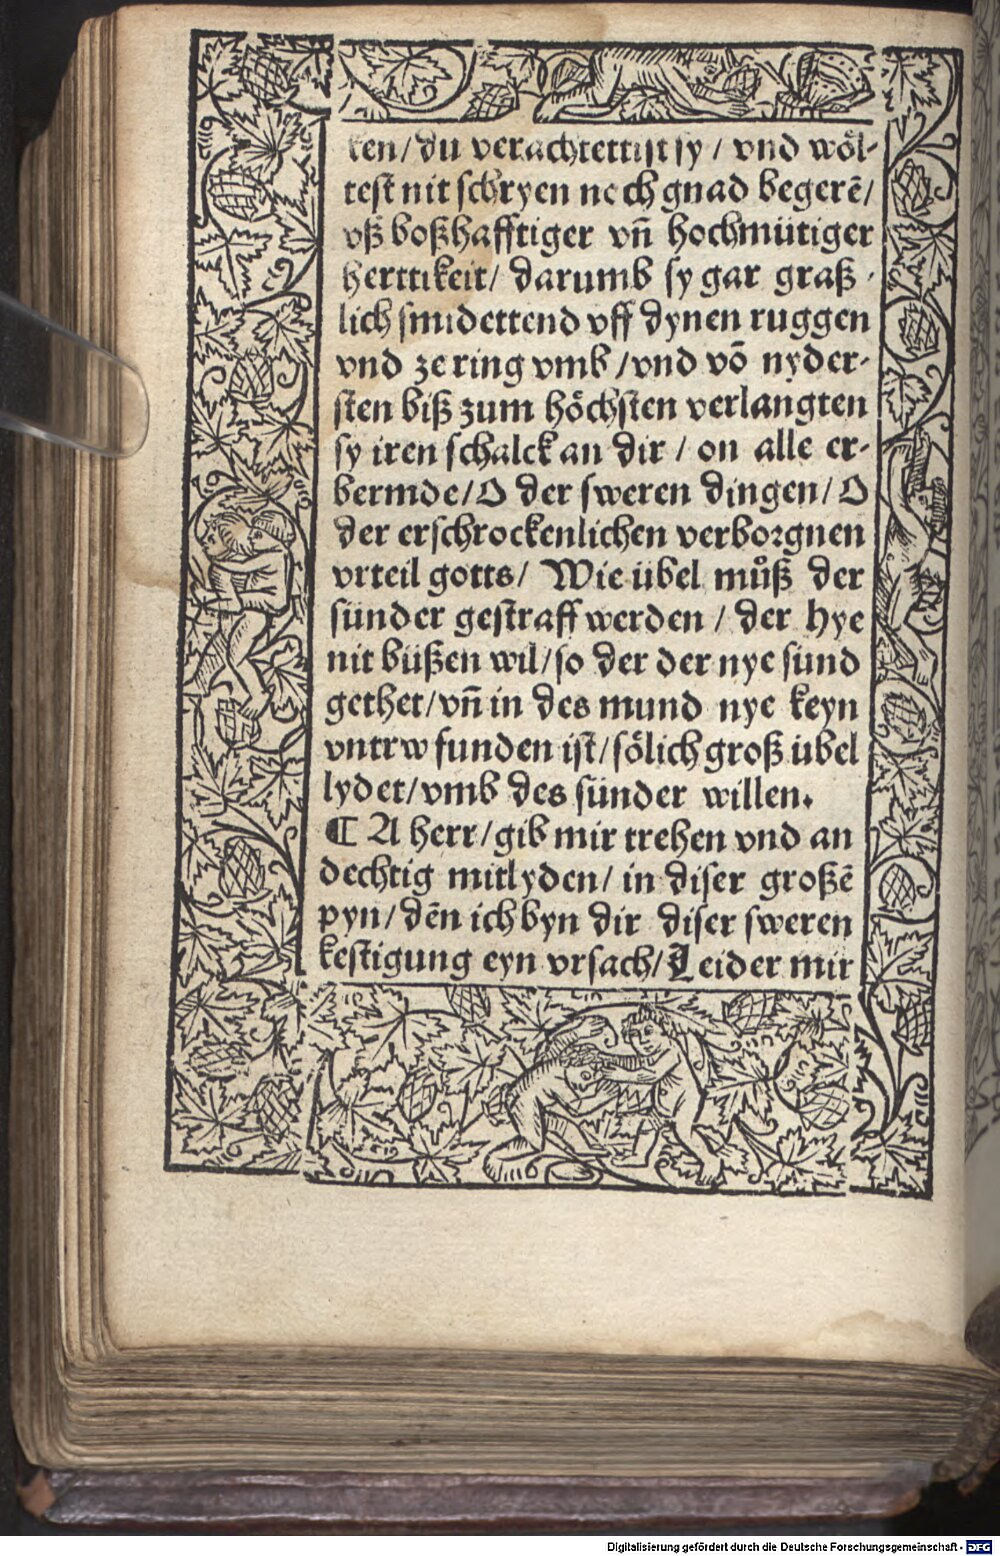 ken/ du verachtettist sy / vnd wöl-
test nit schryen noch gnad begerē/
vß boßhafftiger vn̄ hochmütiger
herttikeit/ darumb sy gar graß-
lich smidettend vff dynen ruggen
vnd ze ring vmb /vnd vō nyder-
sten biß zum höchsten verlangten
sy iren schalck an dir / on alle er-
bermde/O der sweren dingen/ O
der erschrockenlichen verborgnen
vrteil gotts/ Wie übel můß der
sünder gestraff werden / der hye
nit büßen wil/so der der nye sünd
gethet/vn̄ in des mund nye keyn
vntrw funden ist/sölich groß übel
lydet/vmb des sünder willen.
¶ A herr/gib mir trehen vnd an
dechtig mitlyden/ in diser großē
pyn/ dēn ich byn dir diser sweren
kestigung eyn vrsach/ Leider mir
Digitalisierung gefördert durch die Deutsche Forschungsgemeinschaft - DFG